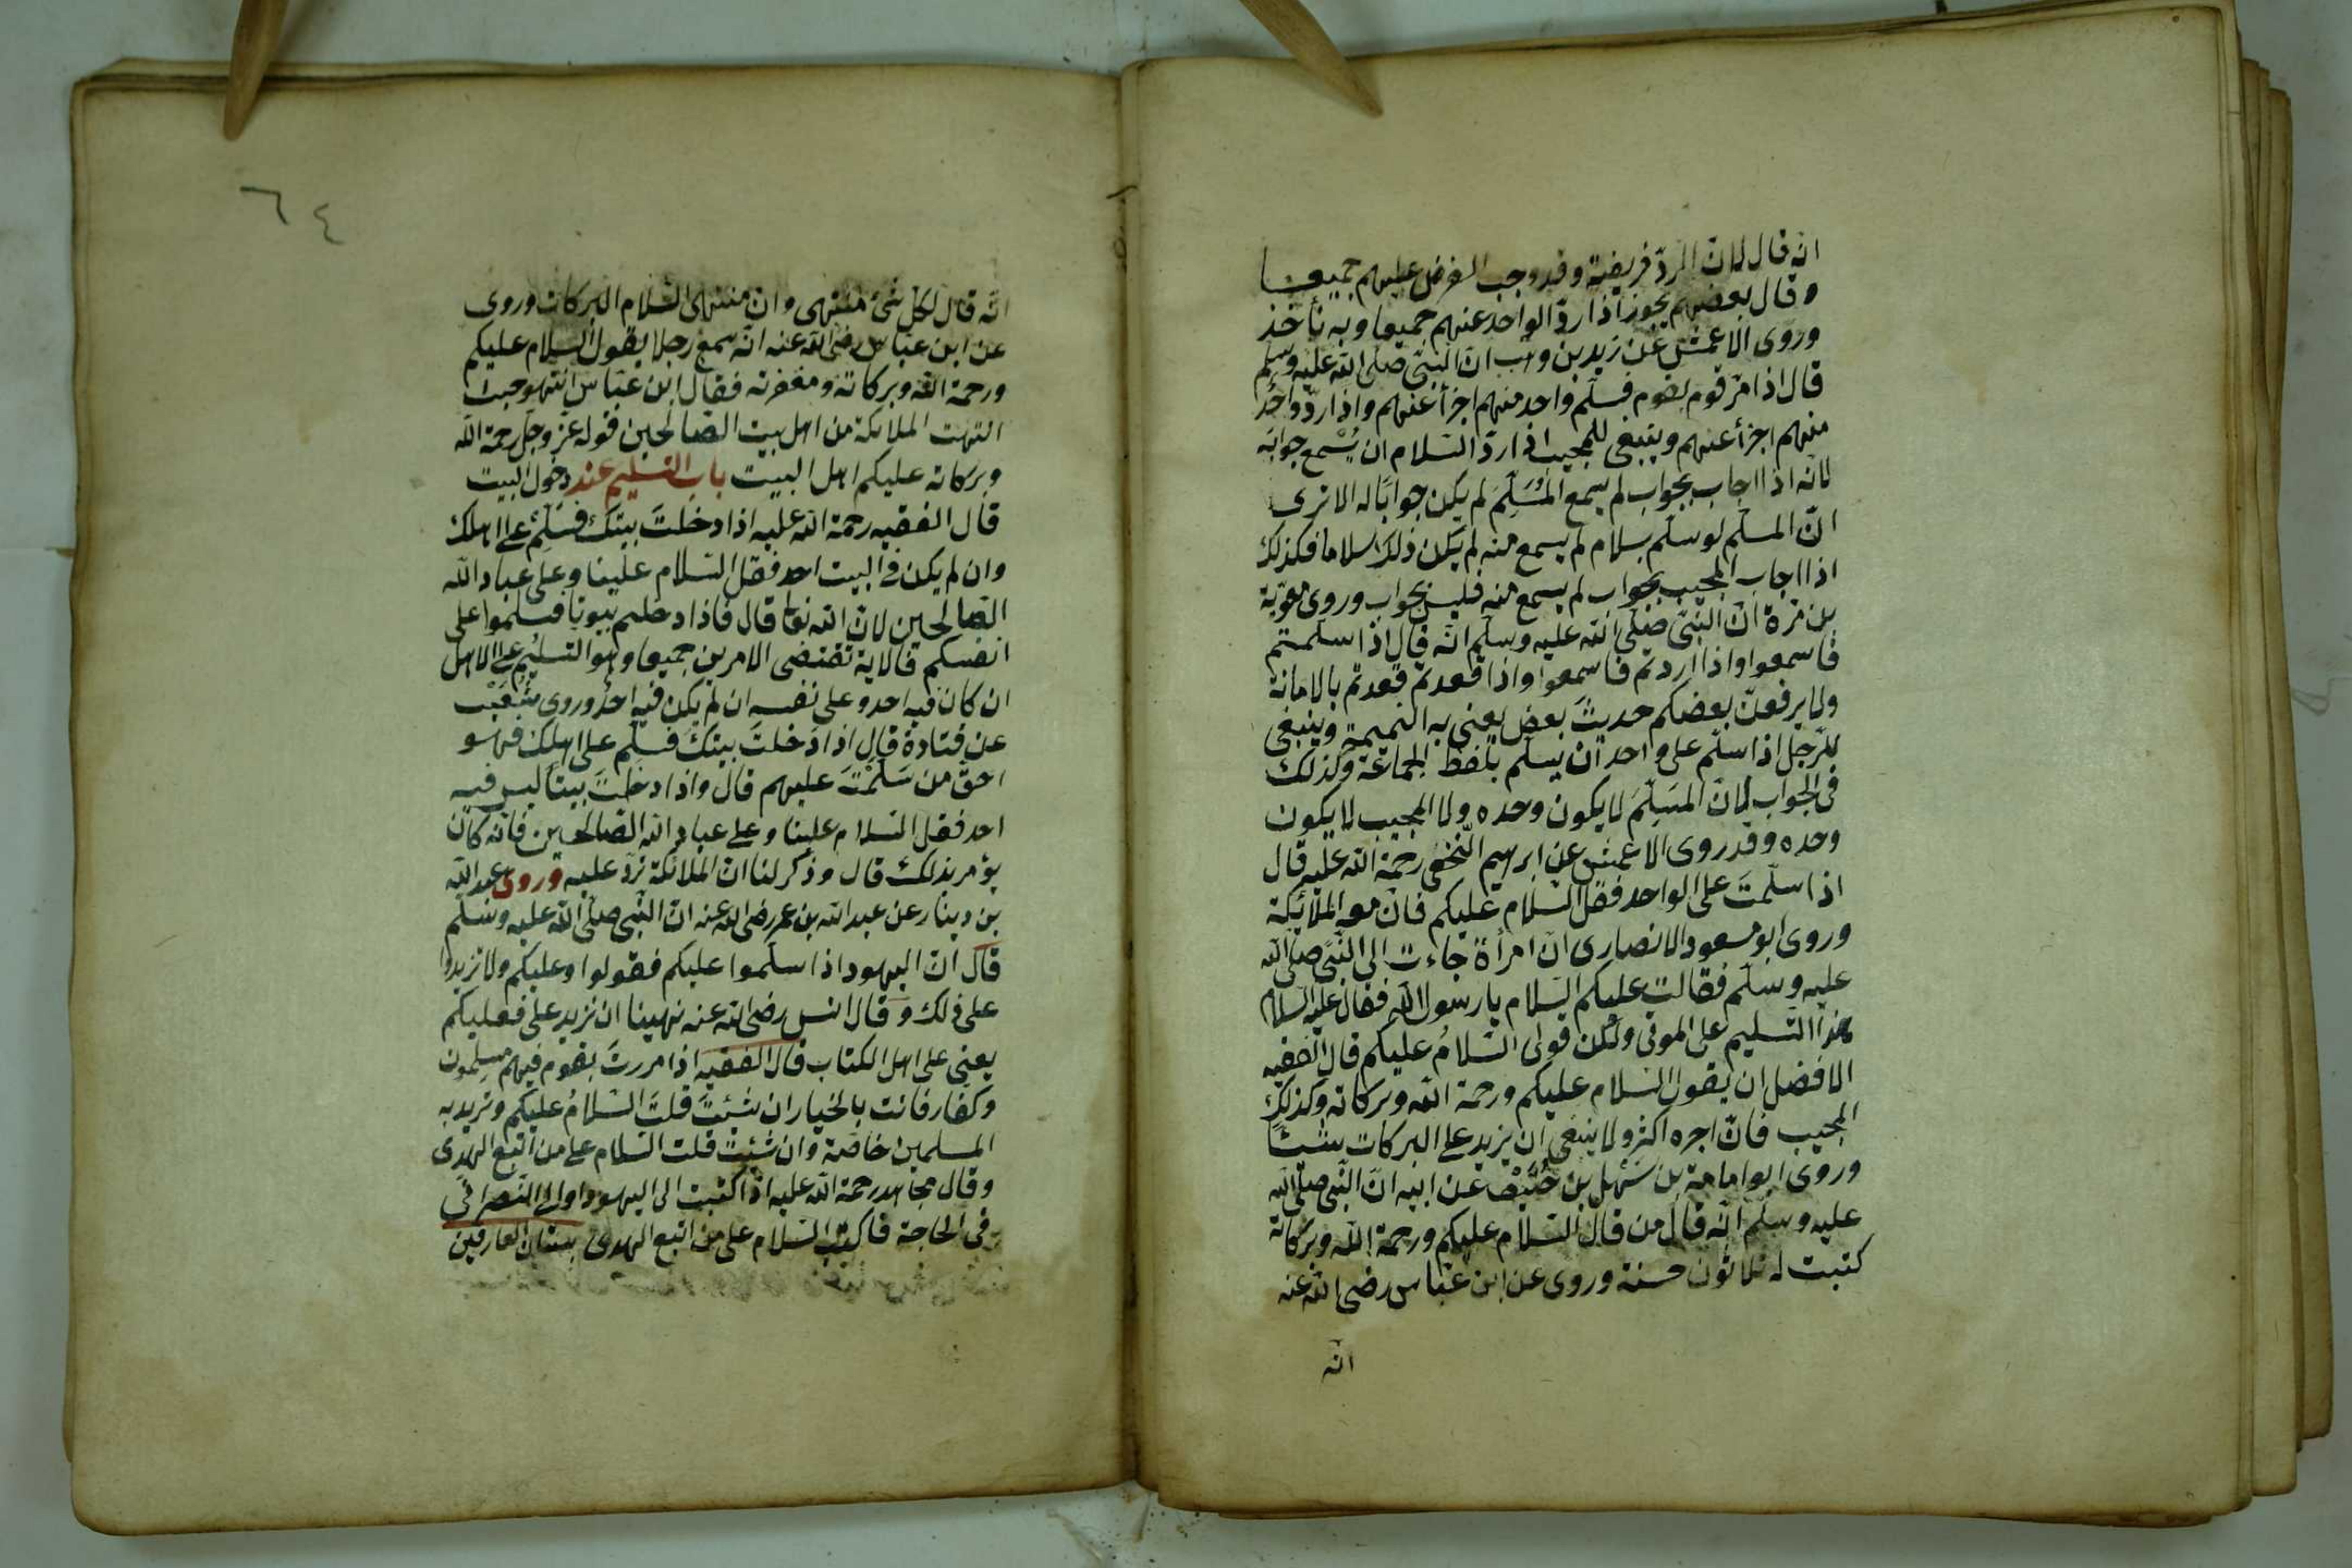 انه قال لان الردّ فريضة وقد وجب الفرض عليهم جميعا
وقال بعضهم يجوز اذا ردّ الواحد عنهم جميعا وبه نأخذ
وروى الاعمش عن زيد بن وهب انّ النبىّ صلّى الله عليه وسلم
قال اذا مرّ قوم بقوم فسلّم واحد منهم اجزأ عنهم واذا ردّ واحد
منهم اجزأ عنهم وينبغى للمجيب اذا ردّ السلام ان يُسْمع جوابه
لانّه اذا اجاب بجواب لم يسمع المُسَلِّمَ لم يكن جوابًا له الا ترى
انّ المسلّم لو سلّم بسلام لم يسمع منه لم يكن ذلك سلاما فكذلك
اذا اجاب المجيب بجواب لم يسمع منه فليس بجواب وروى معوية
بن قرة انّ النبىّ صلّى الله عليه وسلّم انّه قال اذا سلمتم
فاسمعوا واذا رددتم فاسمعوا واذا قعدتم قعدتم بالامانة
ولا يرفعنّ بعضكم حديثَ بعض يعنى به النميمة وينبغى
للرّجل اذا سلّم على واحد ان يسلّم بلفظ الجماعة وكذلك
فى الجواب لانّ المسَلِّمَ لا يكون وحده ولا المجيب لا يكون
وحده وقد روى الاعمش عن ابرهيم النّخعى رحمة الله عليه قال
اذا سلّمتَ على الواحد فقل السّلام عليكم فانّ معه الملائكة
وروى ابو مسعود الانصارى انّ امرأة جاءت الى النّبىّ صلّى الله
عليه وسلّم فقالت عليكم السّلام يا رسول الله فقال عليه السلام
هذا التّسليم على الموتى ولكن قولى السّلامُ عليكم قال الفقيه
الافضل ان يقول السّلام عليكم ورحمة الله وبركاته وكذلك
المجيب فانّ اجره اكثر ولا ينبغى ان يزيد على البركات شيئًا
وروى ابو امامة بن سَهْل بن حُنَيْف عن ابيه انّ النّبى صلّى الله
عليه وسلم انّه قال من قال السّلام عليكم ورحمة الله وبركاته
كتبت له ثلاثون حسنة وروى عن ابن عبّاس رضى الله عنه
انّه
٦٤
انّه قال لكل شئ منتهى وان منتهى السّلام البركات وروى
عن ابن عبّاس رضى الله عنه انّه سمع رجلا يقول السّلام عليكم
ورحمة الله وبركاته ومغفرته فقال ابن عبّاس انتهو حيث
انتهت الملائكة من اهل بيت الصّالحين قوله عزّ وجلّ رحمة الله
وبركاته عليكم اهل البيت باب التسليم عند دخول البيت
قال الفقيه رحمة الله عليه اذا دخلتَ بيتك فسلّم على اهلك
وان لم يكن فى البيت احد فقل السّلام علينا وعلى عباد الله
الصّالحين لانّ الله تعا قال فاذا دخلتم بيوتا فسلّموا على
انفسكم فالاية تقتضى الامرين جميعا وهو التسليم على الاهل
ان كان فيه احد وعلى نفسه ان لم يكن فيه احدٌ وروى شعيب
عن قتادة قال اذا دَخلتَ بيتكَ فسلّم على اهلك فهو
احقّ من سَلَّمْتَ عليهم قال واذا دخلتَ بيتًا ليس فيه
احد فقل السّلام علينا وعلى عباد الله الصّالحين فانّه كان
يؤمر بذلك قال وذُكر لنا انّ الملائكة تردّ عليه وروى عبد الله
بن دينار عن عبد الله بن عمر رضى الله عنه انّ النّبى صلّى الله عليه وسلّم
قال انّ اليهود اذا سلّموا عليكم فقولوا وعليكم ولا تزيدوا
على ذلك وقال انس رضى الله عنه نهينا ان نزيد على فعليكم
يعنى على اهل الكتاب قال الفقيه اذا مررتَ بقوم فيهم مسلمون
وكفار فانت بالخيار ان شيئتَ قلتَ السّلامُ عليكم وتريد به
المسلمين خاصّة وان شيئت قلت السّلام على من اتّبع الهدى
وقال مجاهد رحمة الله عليه اذا كتبت الى اليهود او الى النّصرانى
فى الحاجة فاكتب السّلام على من اتبع الهدى بستان العارفين